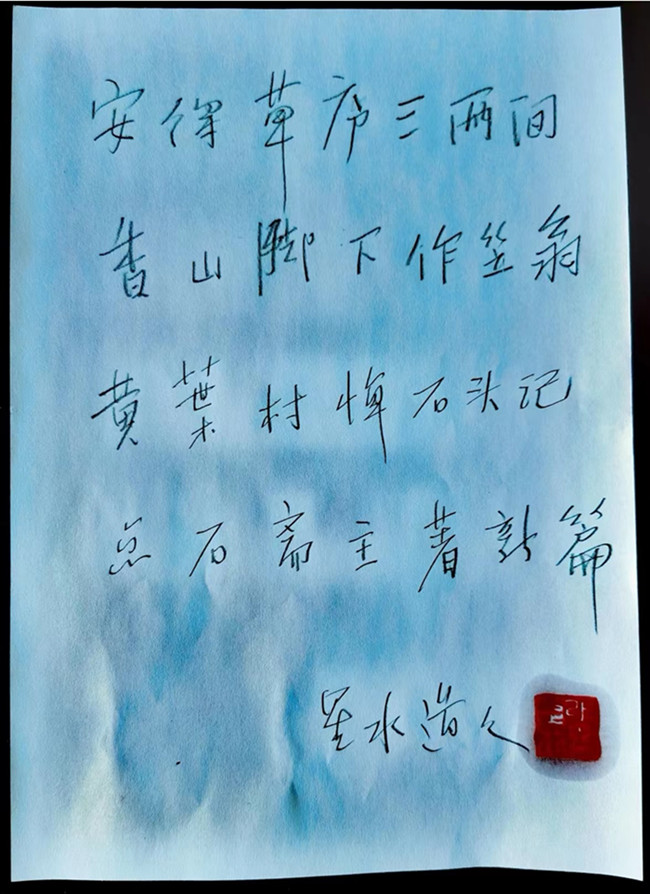 安得草庐三两间
香山脚下作笠翁
黄葉村悼石头记
石斋主著新篇
星水道人